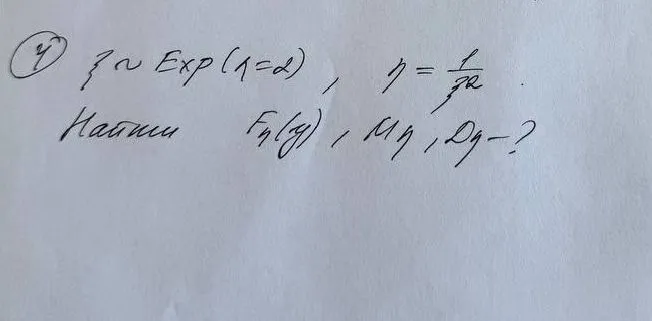 ④ ξ ~ Exp(λ=2), η = 1/ξ².
Найти Fη(y), Mη, Dη - ?